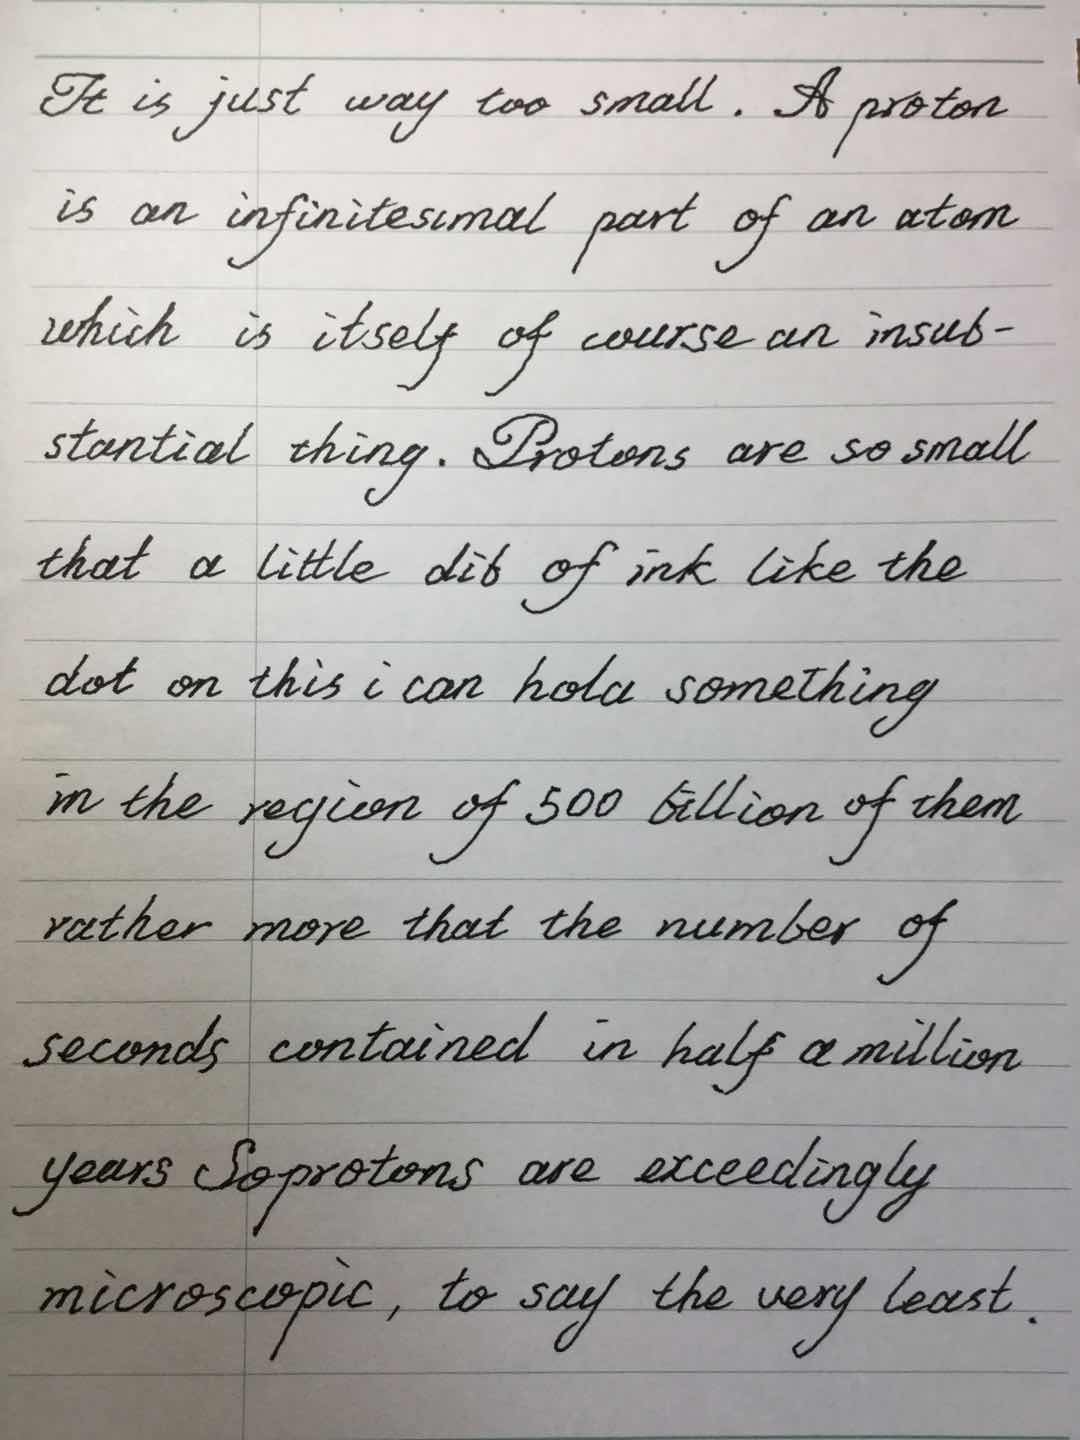 It is just way too small. A proton
is an infinitesimal part of an atom
which is itself of course an insub-
stantial thing. Protons are so small
that a little dib of ink like the
dot on this i can hold something
in the region of 500 billion of them
rather more that the number of
seconds contained in half a million
years So protons are exceedingly
microscopic, to say the very least.